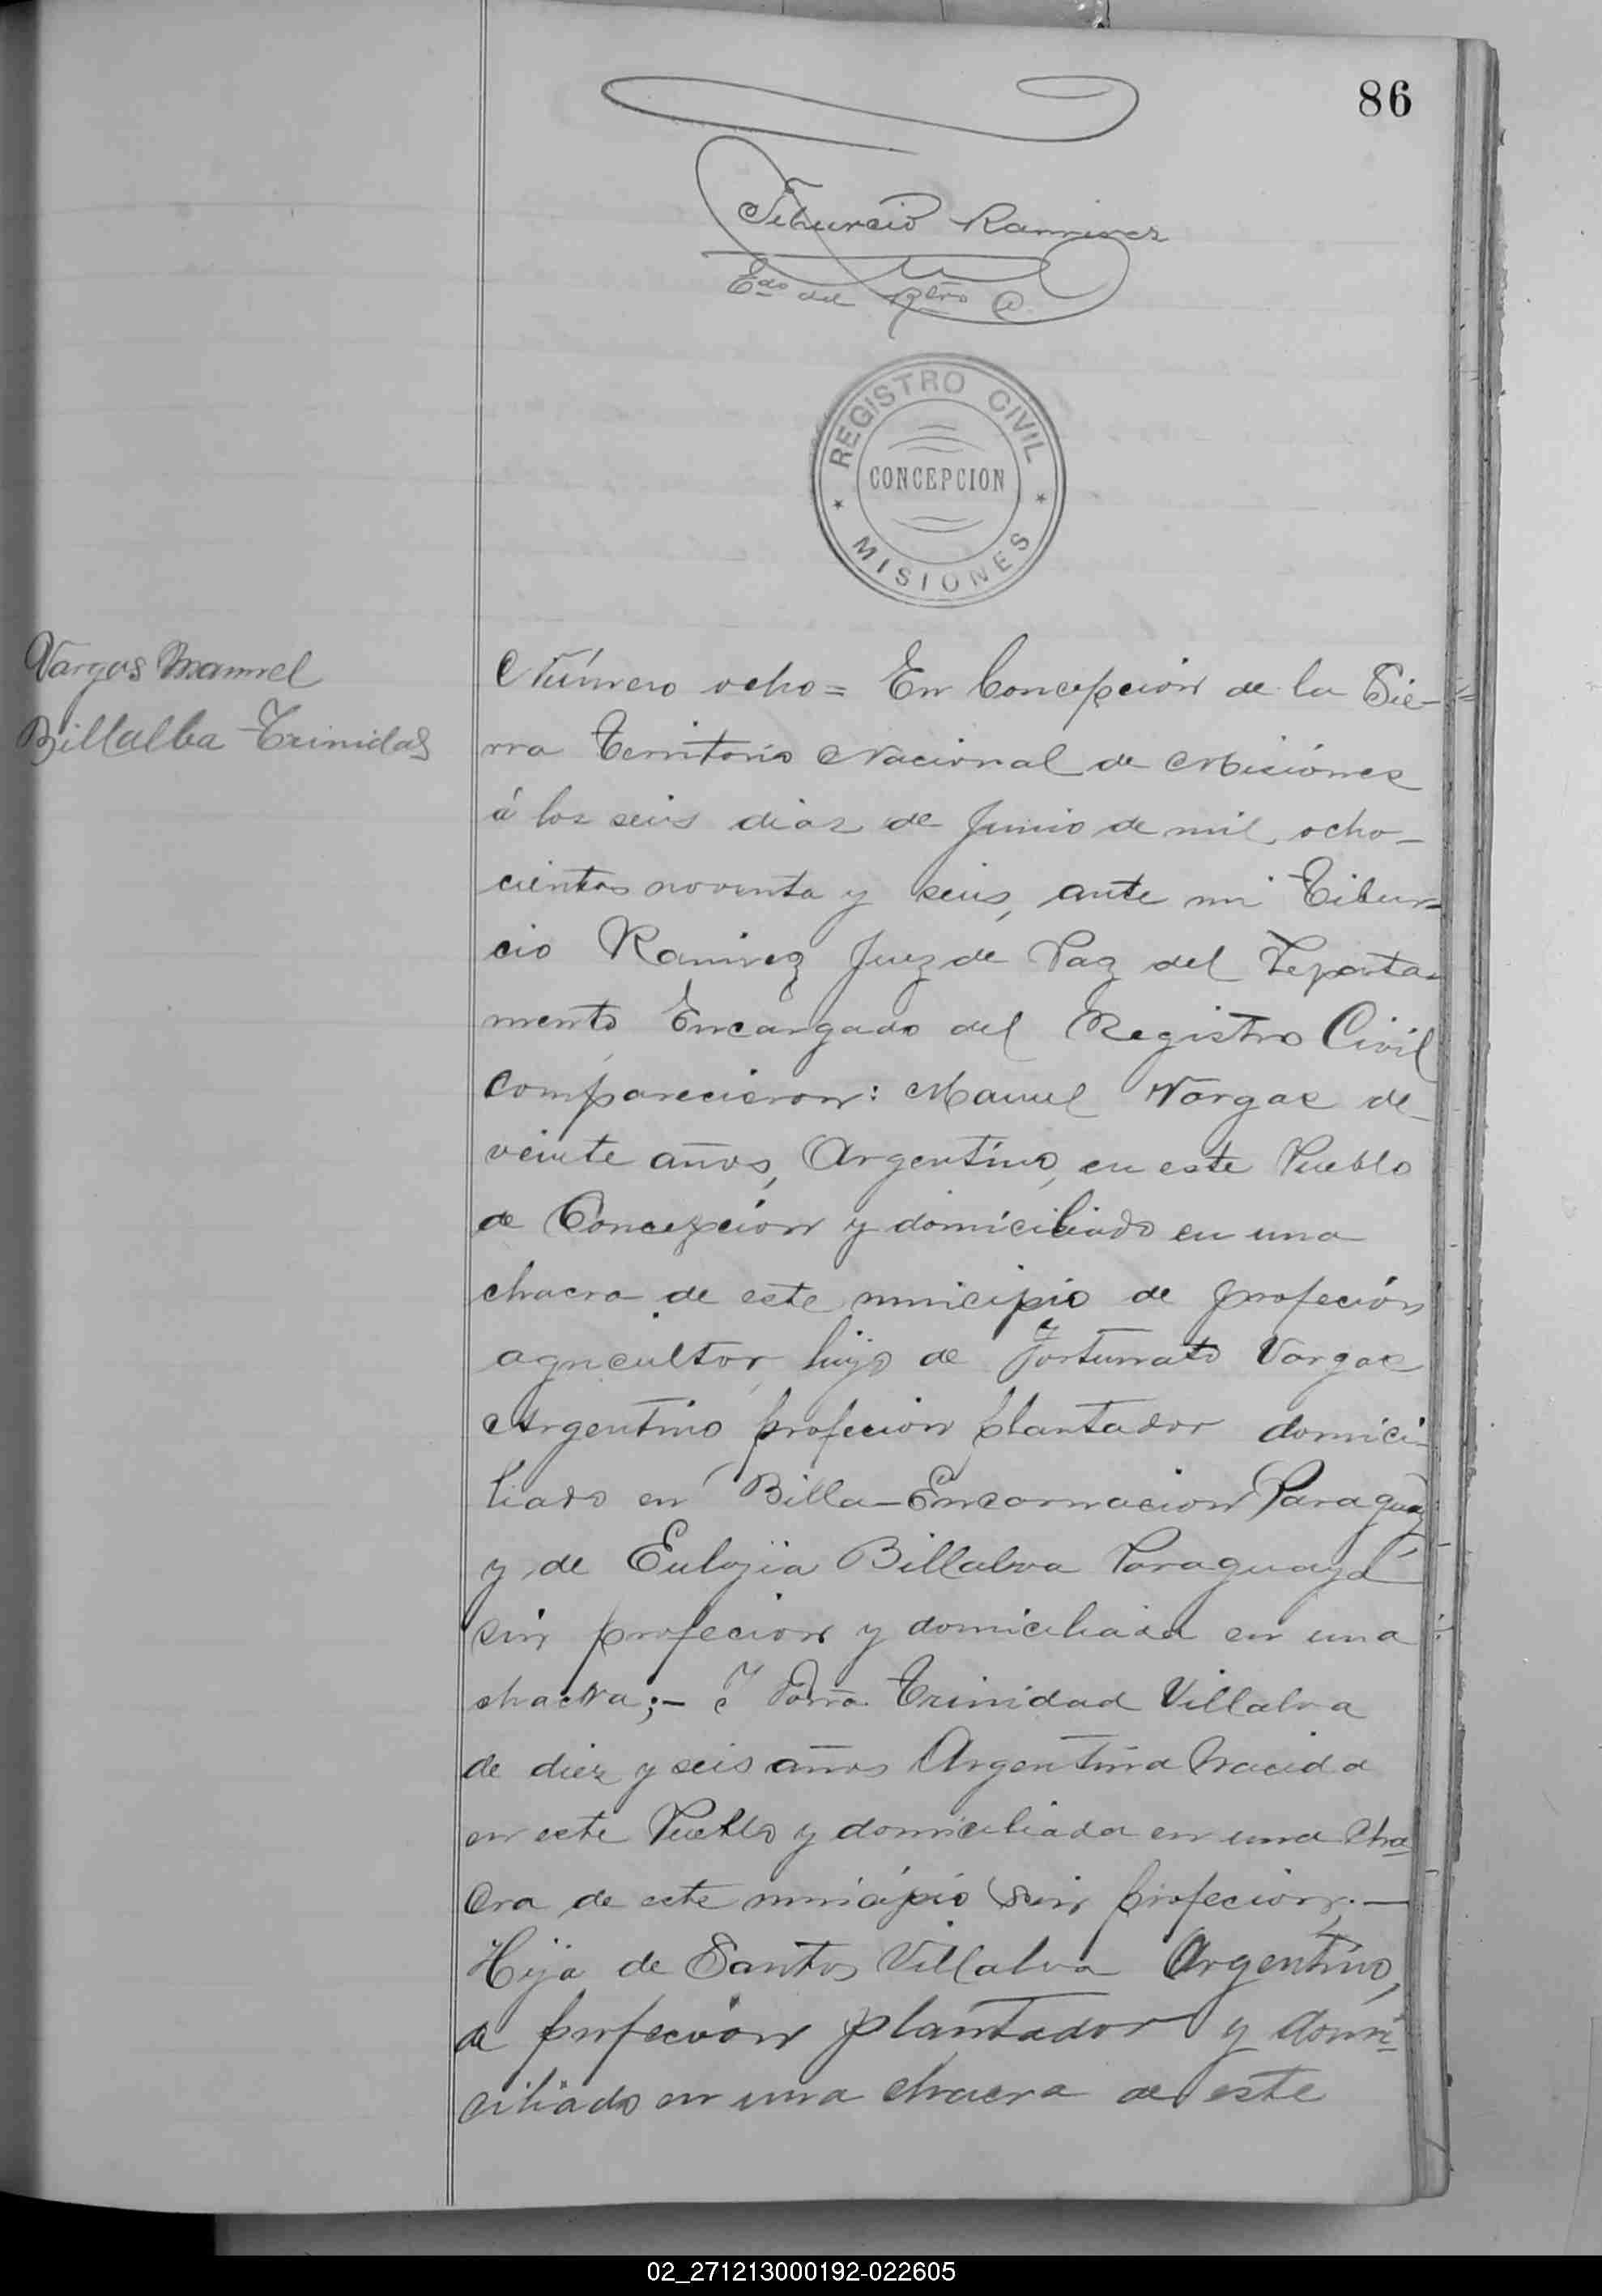 86
Tiburcio Ramirez
Edo del Rtro C
REGISTRO CIVIL
CONCEPCION
MISIONES
Vargas Manuel
Billalba Trinidad
Número ocho= En Concepción de la Sie-
rra Territorio Nacional de Misiónes
á los seis dias de Junio de mil ocho-
cientos noventa y seis, ante mi Tibur-
cio Ramirez Juez de Paz del Departa-
mento Encargado del Registro Civil
comparecieron: Manuel Vargas de
veinte años, Argentino, en este Pueblo
de Concepción y domiciliado en una
chacra de este municipio de profeción
agricultor, hijo de Fortunato Vargas
Argentino profecion plantador domici-
liado en Billa-Encarnacion Paraguay
y de Eulojia Billalva Paraguaya
sin profecion y domiciliada en una
chacra;- I Doña Trinidad Villalva
de diez y seis años Argentina Nacida
en este Pueblo y domiciliada en una cha
cra de este municipio sin profecion.-
Hija de Santos Villalva Argentino,
de profecion plantador y domi-
ciliado en una chacra de este
02_271213000192-022605